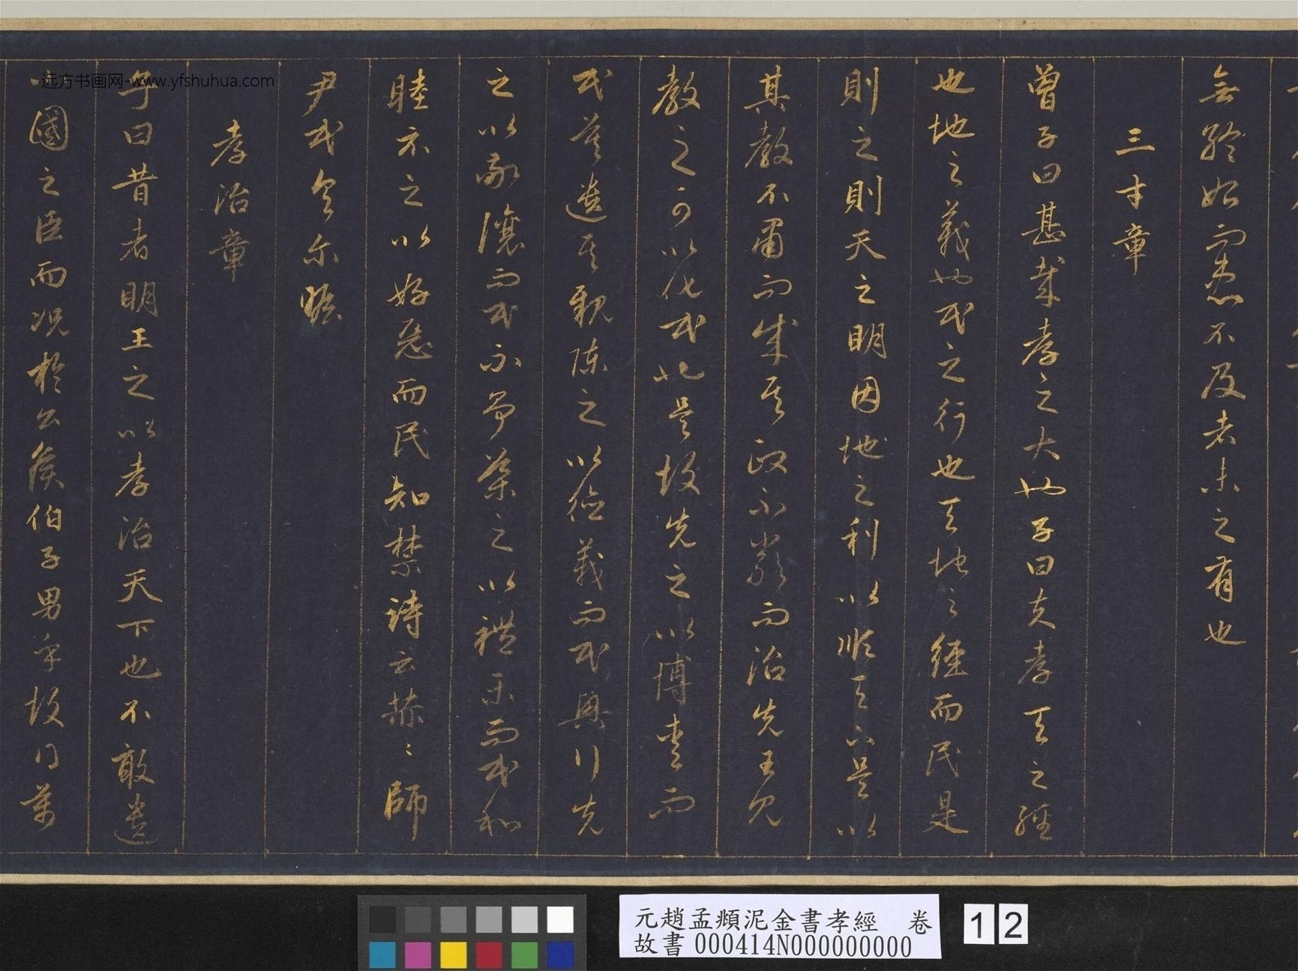 無終始而患不及者未之有也
三才章
曾子曰甚哉孝之大也子曰夫孝天之經
也地之義也民之行也天地之經而民是
則之則天之明因地之利以順天下是以
其教不肅而成其政不嚴而治先王見
教之可以化民也是故先之以博愛而
民莫遺其親陳之以德義而民興行先
之以敬讓而民不爭導之以禮樂而民和
睦示之以好惡而民知禁詩云赫〻師
尹民具尔瞻
孝治章
子曰昔者明王之以孝治天下也不敢遺
小國之臣而況於公侯伯子男乎故得萬
远方书画网-www.yfshuhua.com
元趙孟頫泥金書孝經 卷
故書 000414N000000000
12